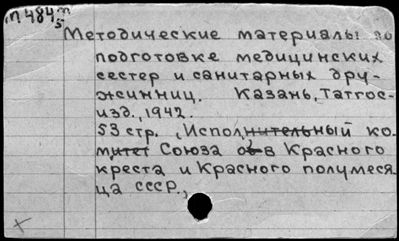 П 484 m/5
Методические материалы по
подготовке медицинских
сестер и санитарных дру-
жинниц. Казань, Татгос-
изд., 1942.
53 стр., Исполнительный ко-
митет Союза об-в Красного
креста и Красного полумеся
ца СССР.,